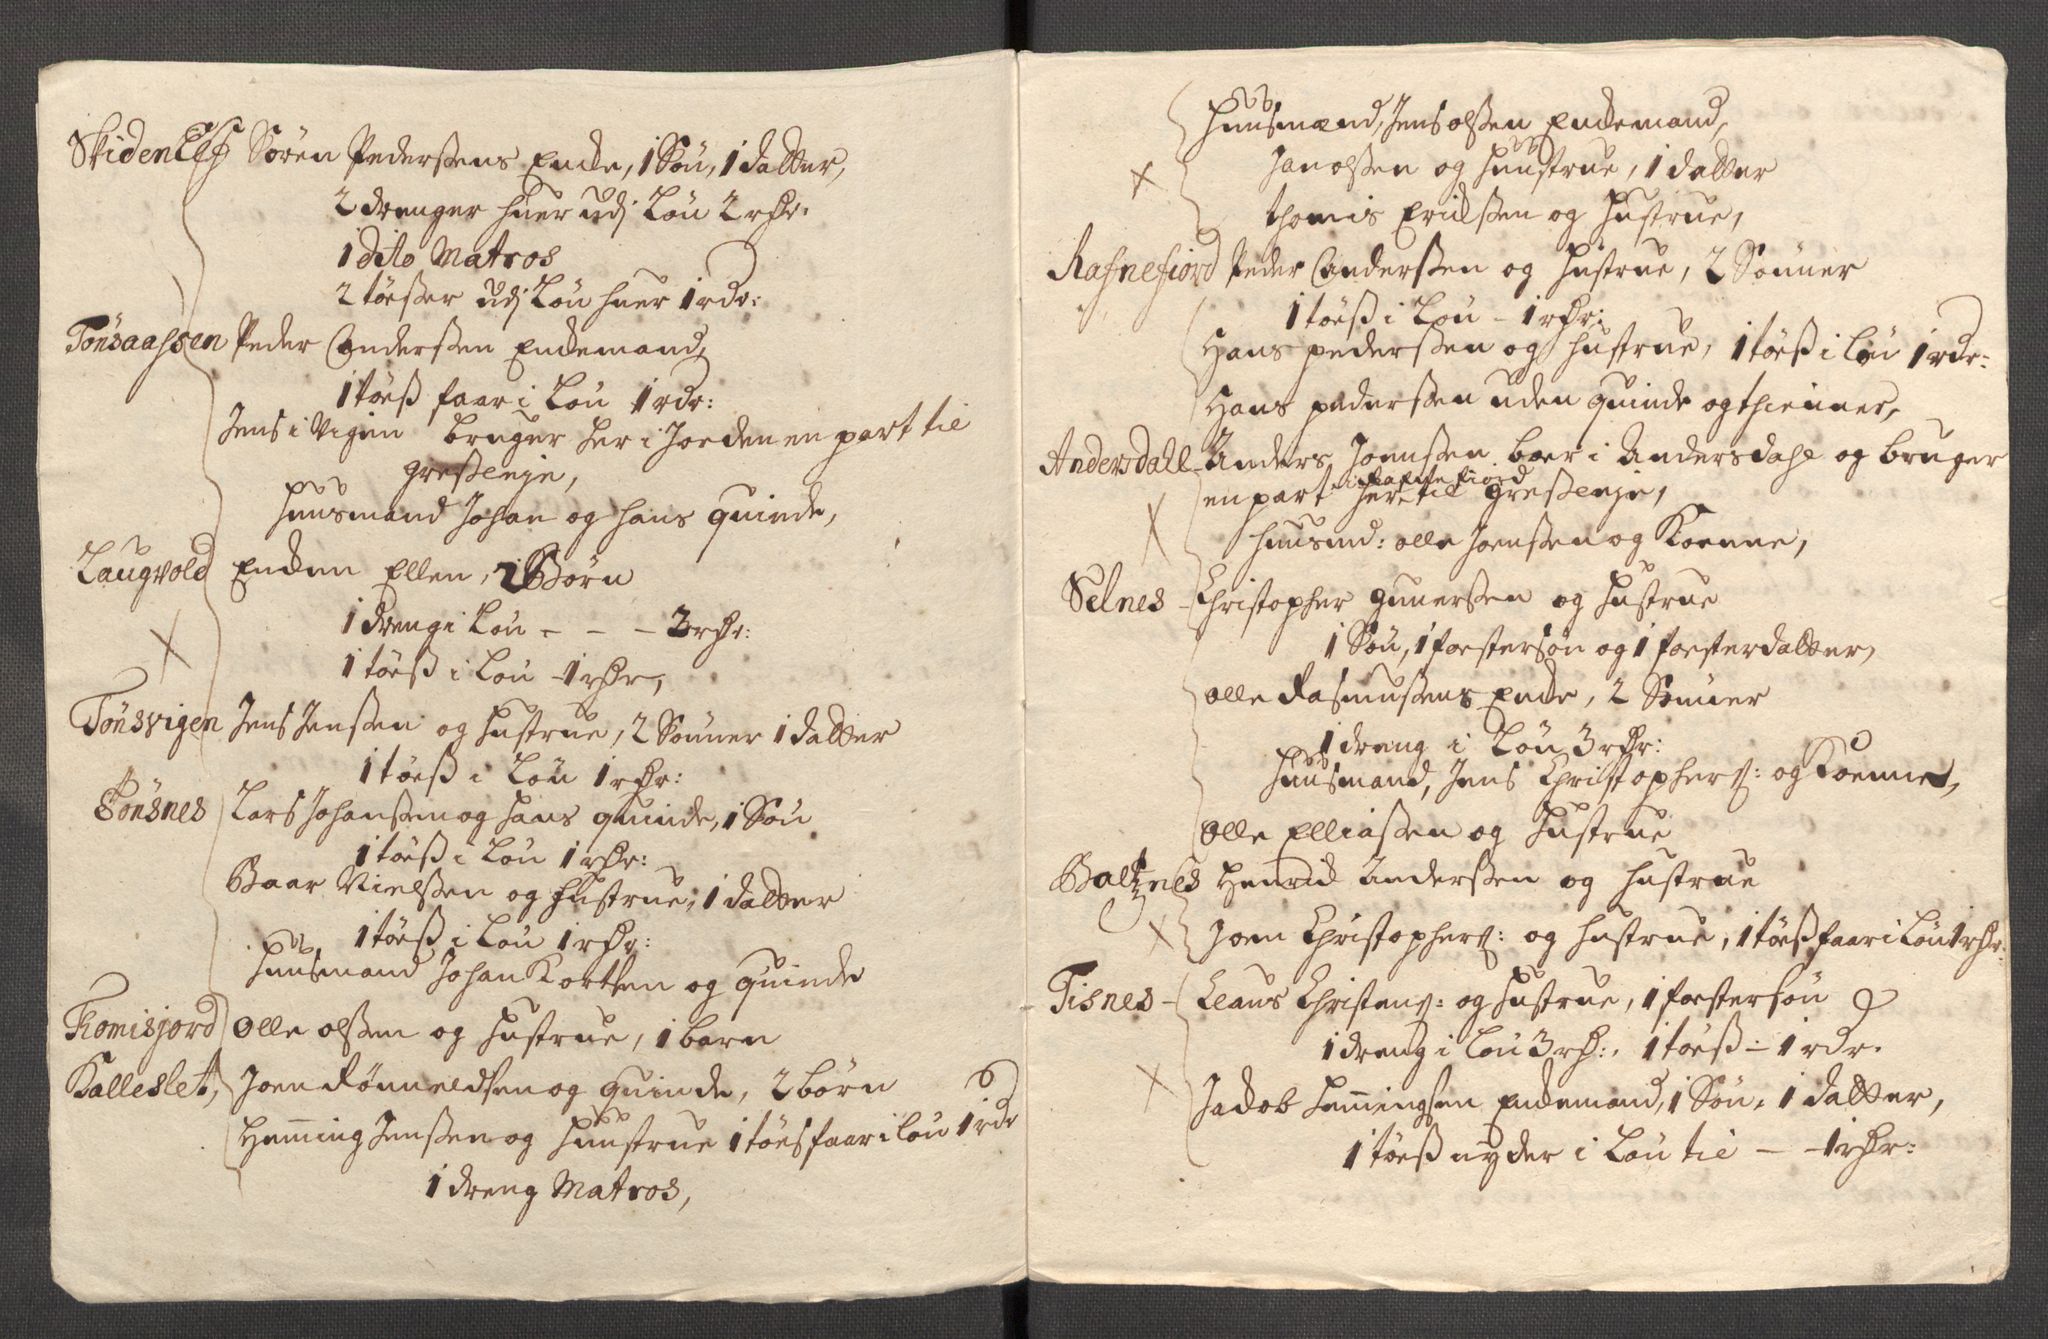 SkidenElf Sören Pedersens Encke, 1 Sön, 1 datter,
2 drenger huer udj Lön 2 rdr:
1 dito Matros
2 töeser udj Lön huer 1 rdr:
Tönsaassen Peder Anderssen Enckemand,
1 töeß faar i Lön 1 rdr:
Jens i Vigen bruger her i Jorden en part til
Gresleyje,
Huusmand Johan og hans quinde,
Laugvold Encken Ellen, 2 Börn
1 dreng i Lön - - - 3 rdr:
1 töeß i Lön - 1 rdr,
Tönsvigen Jens Jenssen og Hustrue, 2 Sönner 1 datter
1 töeß i Lön 1 rdr:
Tönsnes Lars Johanssen og hans quinde, 1 Sön
1 töeß i Lön 1 rdr:
Baar Nielssen og Hustrue, 1 datter
1 töeß i Lön 1 rdr:
Huusmand Johan Kortsen og quinde
Tiomisjord Olle olssen og Hustrue, 1 barn
Kalleslet, Joen Rönneldsen og quinde, 2 börn
Heming Jenssen og Huustrue 1 töes faar i lön 1 rdr
1 dreng Matros,
Huusmænd, Jens olssen Enckemand,
Jan olssen og Huustrue, 1 datter
Thomis Erichssen og Hustrue,
Rafnefiord Peder Anderssen og Hustrue, 2 Sönner
1 töeß i Lön - 1 rdr:
Hans pederssen og Hustrue, 1 töeß i lön 1 rdr:
Hans pederssen uden quinde og thienner,
Andersdall - Anders Joenssen boer i Andersdahl og bruger
i Rafnefiord
en part her til Gresleyje,
huusmd: olle Joenssen og Koenne,
Selnes - Christopher gunerssen og Hustrue
1 Sön, 1 foestersön og 1 foesterdatter,
olle Rasmussens Encke, 2 Sönner
1 dreng i Lön 3 rdr:
Huusmand, Jens Christophers: og Koenne,
Olle Elliassen og Hustrue
Baltznes Henrich Anderssen og Hustrue
Joen Christophers: og Hustrue, 1 töeß faar i Lön 1 rdr.
Tisnes - Claus Christens: og Hustrue, 1 foestersön
1 dreng i Lön 3 rdr:, 1 töeß - 1 rdr.
Jacob Hemingsen Enckemand, 1 Sön, 1 datter,
1 töeß nyder i Lön til - - 1 rdr: